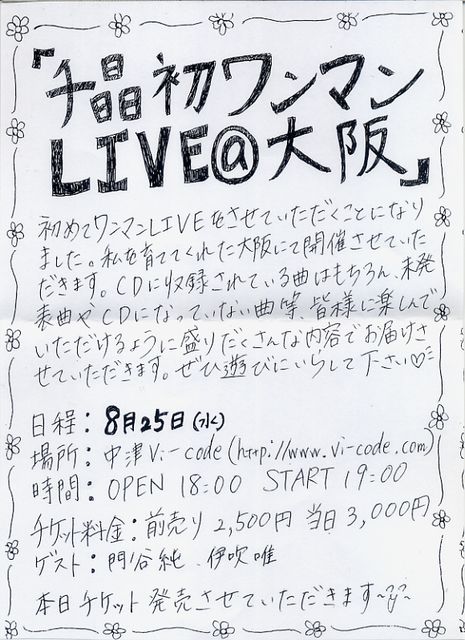 『千晶初ワンマン
LIVE@大阪』
初めてワンマンLIVEをさせていただくことになり
ました。私を育ててくれた大阪にて開催させていた
だきます。CDに収録されている曲はもちろん、未発
表曲やCDになっていない曲等、皆様に楽しんで
いただけるように盛りだくさんな内容でお届けさ
せていただきます。ぜひ遊びにいらして下さい♡
日程：8月25日(水)
場所：中津Vi-code(http://www.vi-code.com)
時間：OPEN 18:00 START 19:00
チケット料金：前売り 2,500円 当日 3,000円
ゲスト：門谷純、伊吹唯
本日チケット発売させていただきます